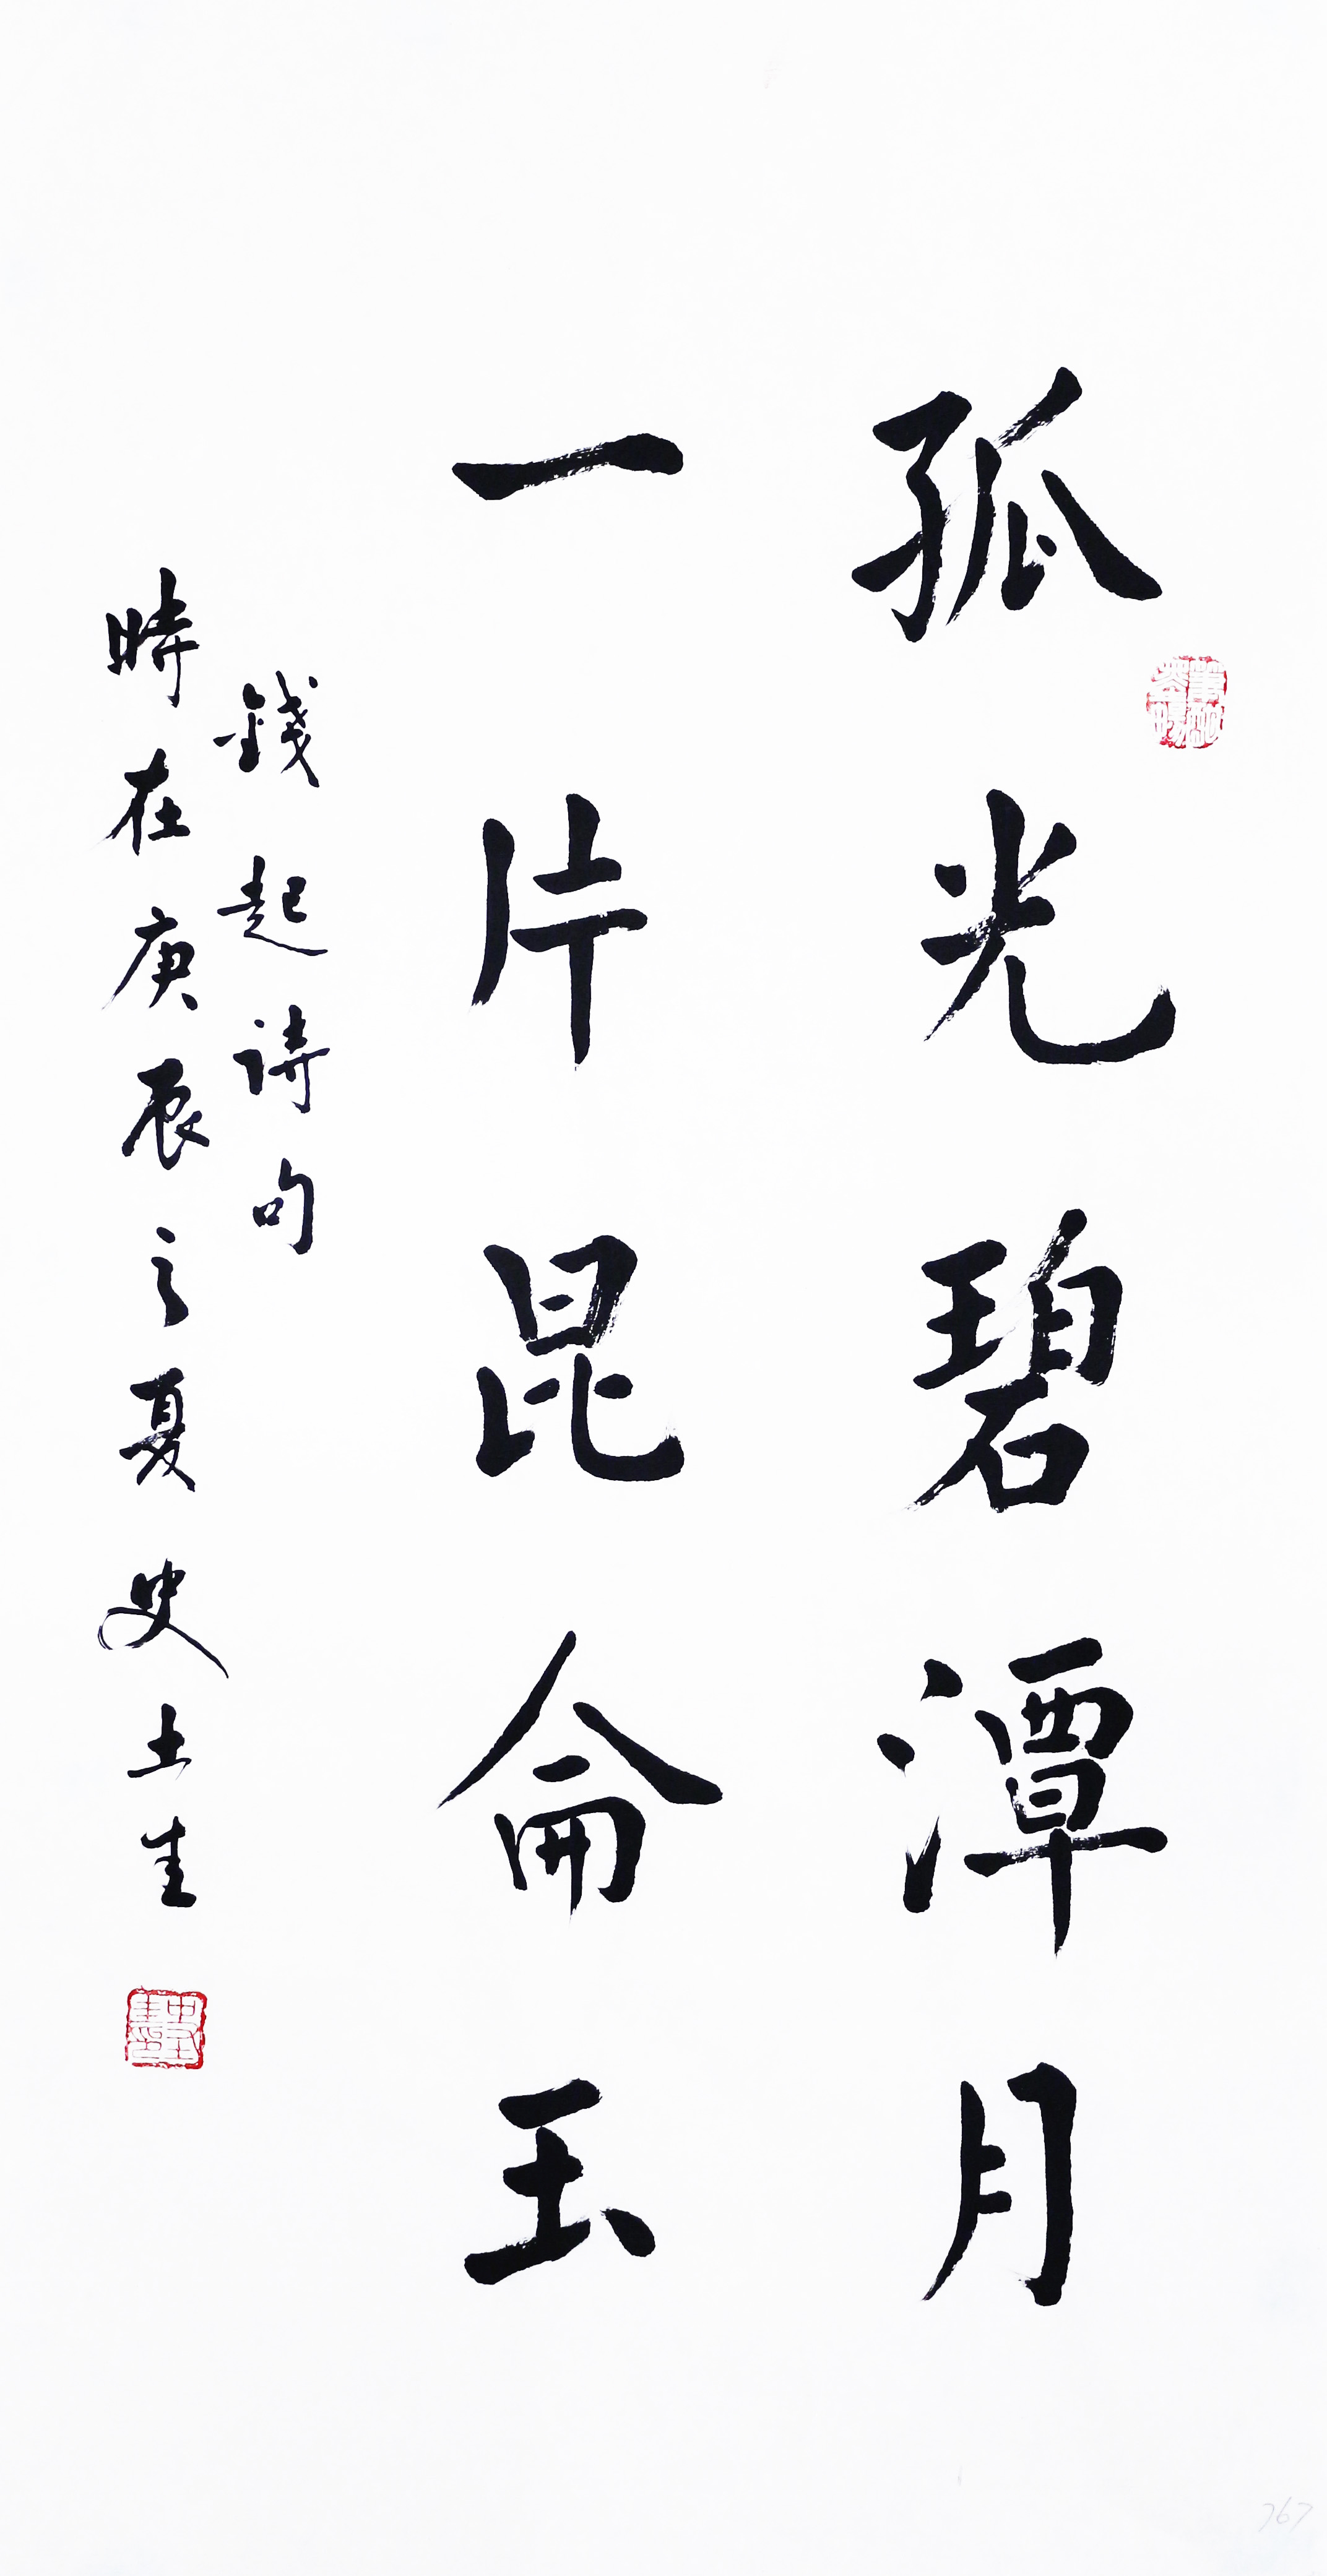 孤光碧潭月
一片昆侖玉
錢起詩句
時在庚辰之夏史土生
767